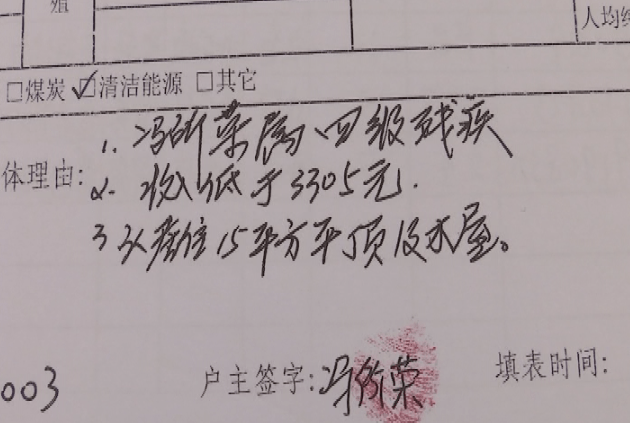 殖
人均纯
□煤炭 ☑清洁能源 □其它
1. 冯所荣属四级残疾
体理由:
2. 收入低于3305元.
3 住15平方平顶及木屋。
003
户主签字:冯所荣
填表时间: